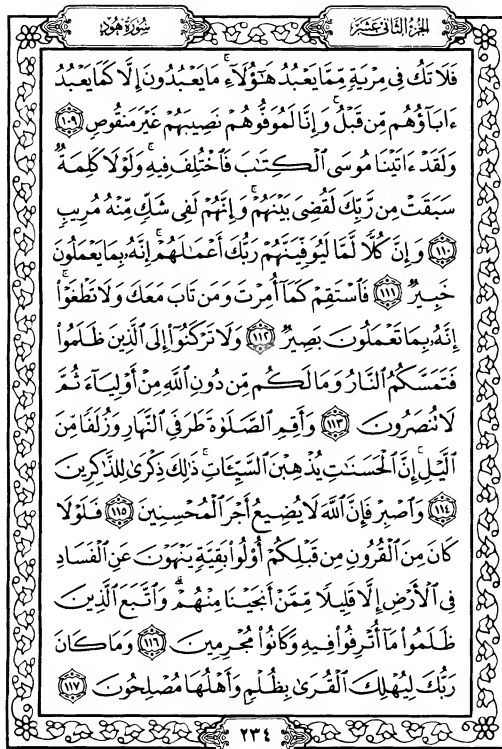 الجزء الثانى عشر
سورة هود
فَلَا تَكُ فِى مِرْيَةٍ مِّمَّا يَعْبُدُ هَٰٓؤُلَآءِ ۚ مَا يَعْبُدُونَ إِلَّا كَمَا يَعْبُدُ
ءَابَآؤُهُم مِّن قَبْلُ ۚ وَإِنَّا لَمُوَفُّوهُمْ نَصِيبَهُمْ غَيْرَ مَنقُوصٍ ١٠٩
وَلَقَدْ ءَاتَيْنَا مُوسَى ٱلْكِتَٰبَ فَٱخْتُلِفَ فِيهِ ۚ وَلَوْلَا كَلِمَةٌ
سَبَقَتْ مِن رَّبِّكَ لَقُضِىَ بَيْنَهُمْ ۚ وَإِنَّهُمْ لَفِى شَكٍّ مِّنْهُ مُرِيبٍ
١١٠ وَإِنَّ كُلًّا لَّمَّا لَيُوَفِّيَنَّهُمْ رَبُّكَ أَعْمَٰلَهُمْ ۚ إِنَّهُۥ بِمَا يَعْمَلُونَ
خَبِيرٌ ١١١ فَٱسْتَقِمْ كَمَآ أُمِرْتَ وَمَن تَابَ مَعَكَ وَلَا تَطْغَوْا۟ ۚ
إِنَّهُۥ بِمَا تَعْمَلُونَ بَصِيرٌ ١١٢ وَلَا تَرْكَنُوٓا۟ إِلَى ٱلَّذِينَ ظَلَمُوا۟
فَتَمَسَّكُمُ ٱلنَّارُ وَمَا لَكُم مِّن دُونِ ٱللَّهِ مِنْ أَوْلِيَآءَ ثُمَّ
لَا تُنصَرُونَ ١١٣ وَأَقِمِ ٱلصَّلَوٰةَ طَرَفَىِ ٱلنَّهَارِ وَزُلَفًا مِّنَ
ٱلَّيْلِ ۚ إِنَّ ٱلْحَسَنَٰتِ يُذْهِبْنَ ٱلسَّيِّـَٔاتِ ۚ ذَٰلِكَ ذِكْرَىٰ لِلذَّٰكِرِينَ
١١٤ وَٱصْبِرْ فَإِنَّ ٱللَّهَ لَا يُضِيعُ أَجْرَ ٱلْمُحْسِنِينَ ١١٥ فَلَوْلَا
كَانَ مِنَ ٱلْقُرُونِ مِن قَبْلِكُمْ أُو۟لُوا۟ بَقِيَّةٍ يَنْهَوْنَ عَنِ ٱلْفَسَادِ
فِى ٱلْأَرْضِ إِلَّا قَلِيلًا مِّمَّنْ أَنجَيْنَا مِنْهُمْ ۗ وَٱتَّبَعَ ٱلَّذِينَ
ظَلَمُوا۟ مَآ أُتْرِفُوا۟ فِيهِ وَكَانُوا۟ مُجْرِمِينَ ١١٦ وَمَا كَانَ
رَبُّكَ لِيُهْلِكَ ٱلْقُرَىٰ بِظُلْمٍ وَأَهْلُهَا مُصْلِحُونَ ١١٧
٢٣٤